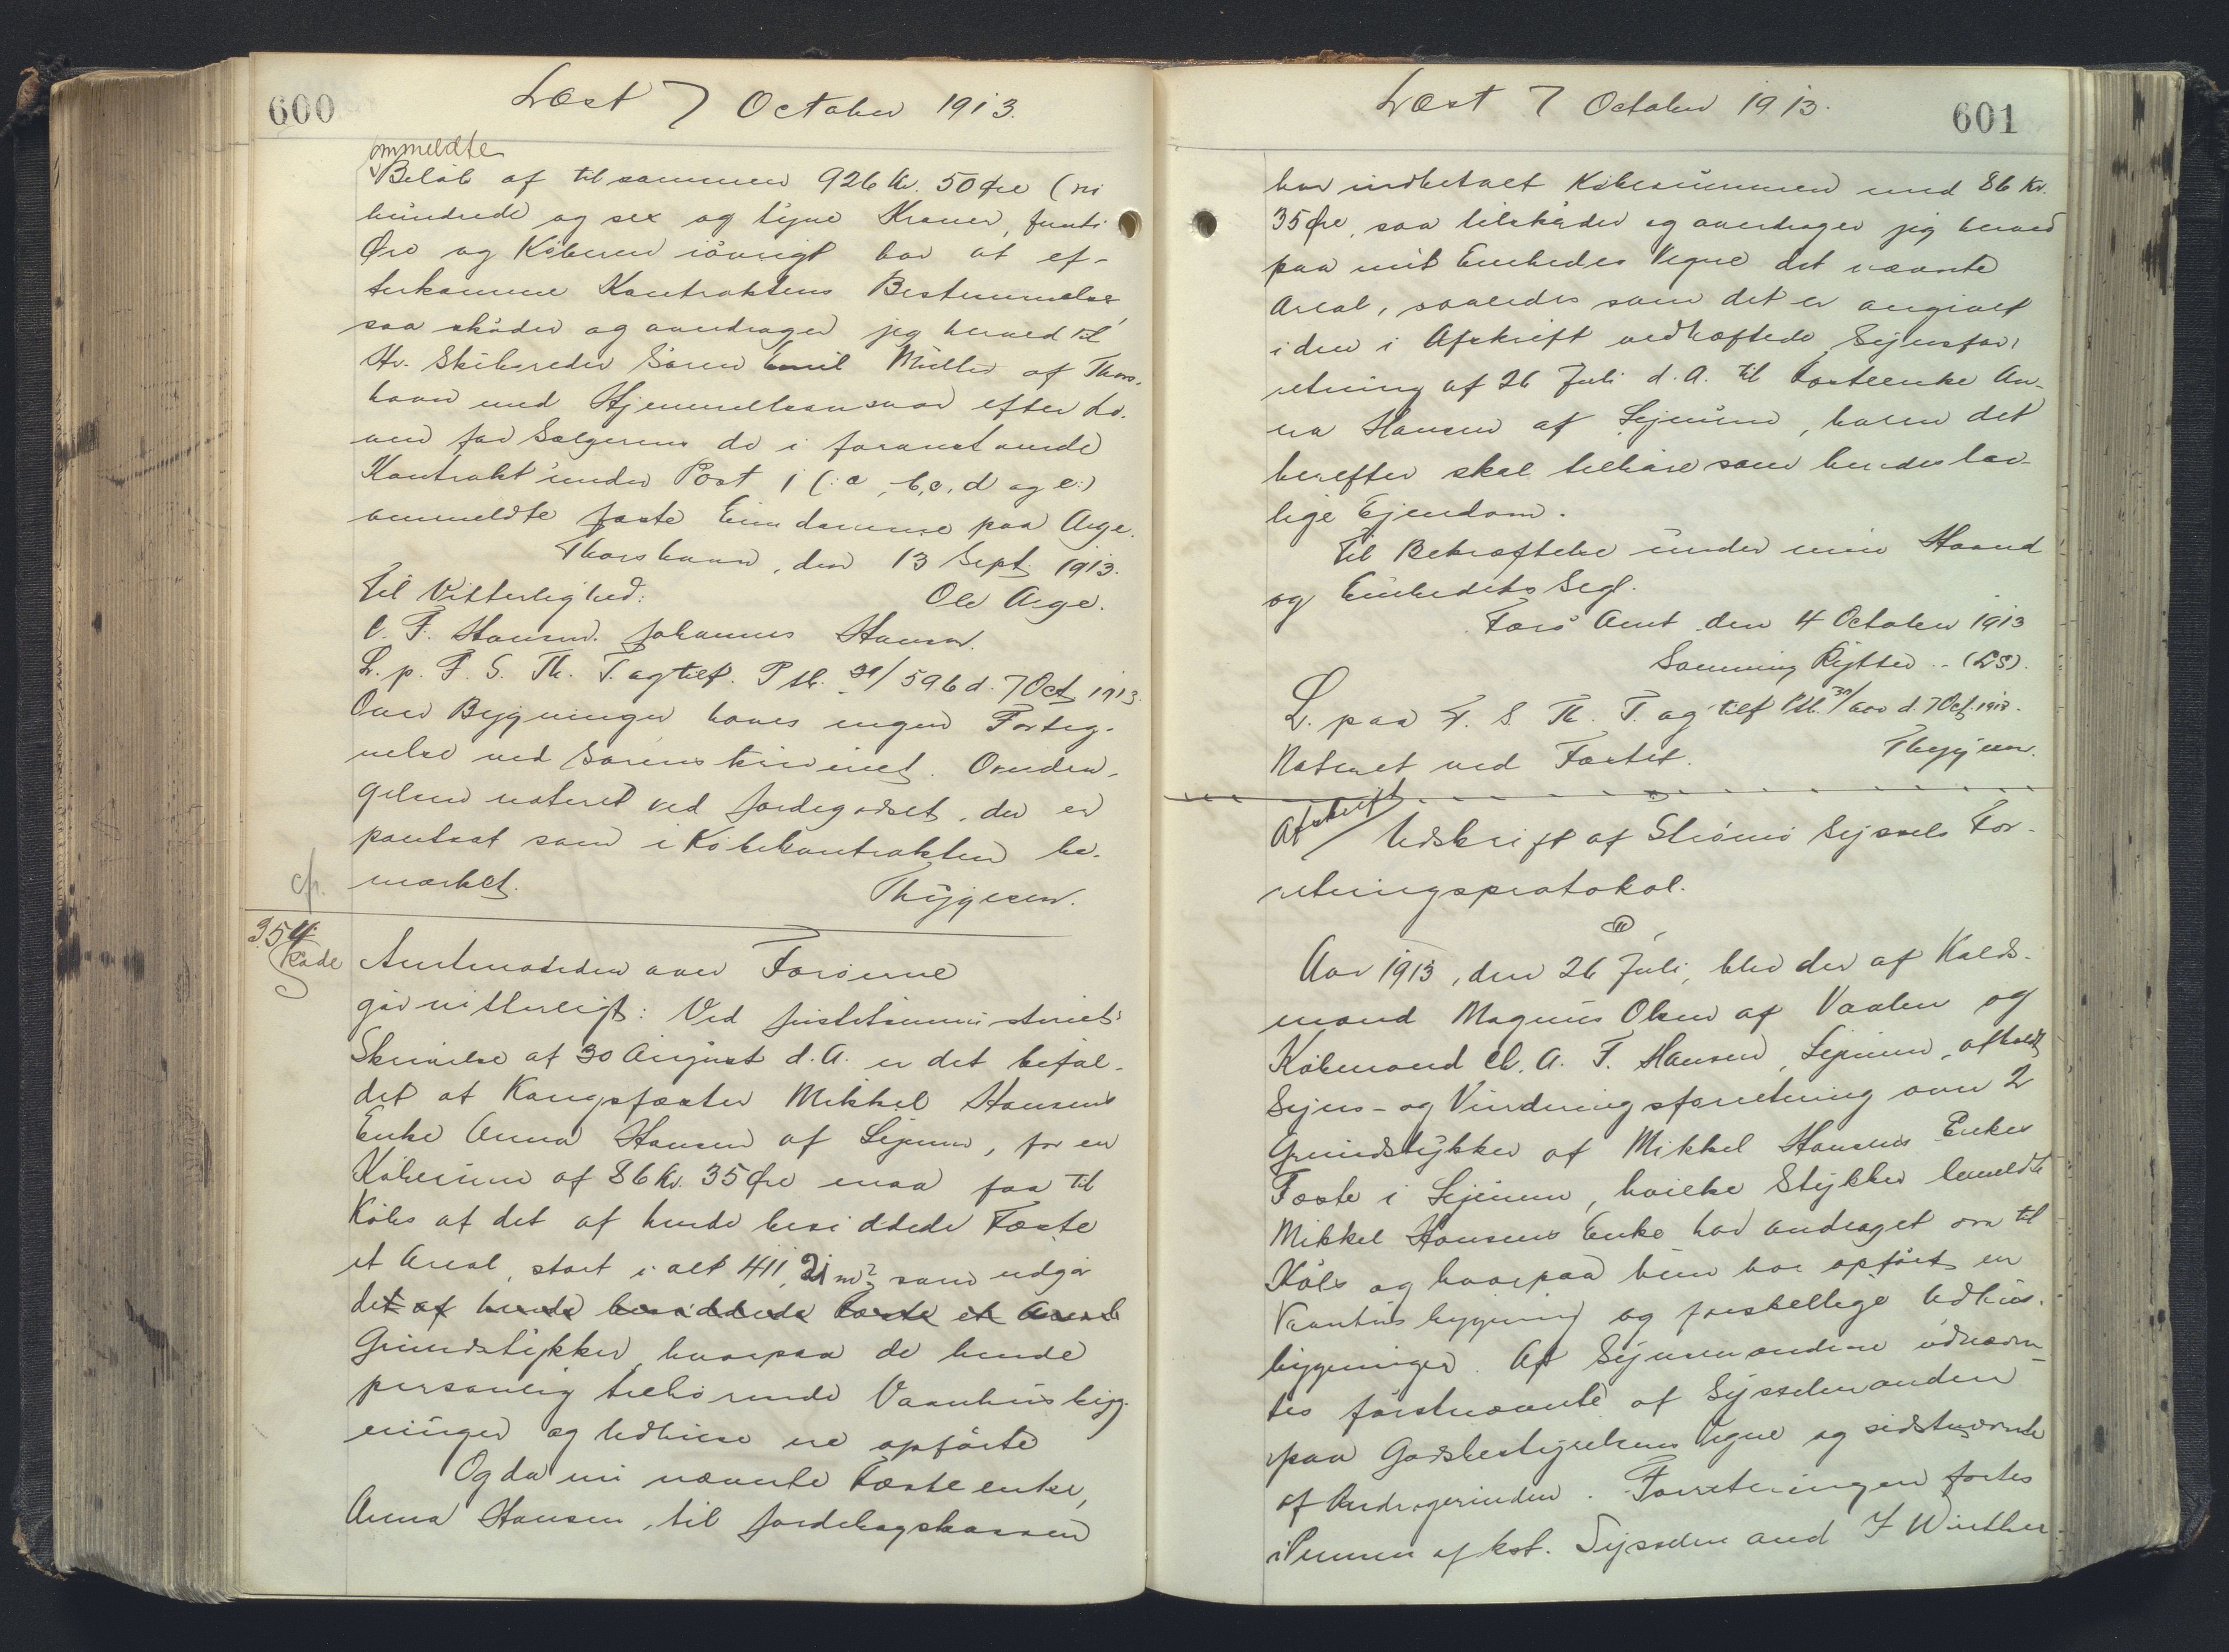 600
Læst 7 October 1913.
ommeldte
Beløb af tilsammen 926 Kr. 50 Øre (ni
hundrede og sex og tyve Kroner, femti
Øre og Køberen iøvrigt har at ef-
terkomme Kontraktens Bestemmelser,
saa skøder og overdrager jeg herved til
Hr. Skibsreder Sören Emil Müller af Thors-
havn med Hjemmelsansvar efter Lo-
ven for Sælgeren de i foranstaaende
Kontrakt under Post 1 (: a, b, c, d og e:)
ommeldte faste Eiendomme paa Arge.
Thorshavn, den 13 Sept. 1913.
Til Vitterlighed: Ole Arge.
C. F. Hansen. Johannes Hansen.
L. p. F. S. Th. T. og tilf. P tk. 31/596 d. 7 Oct 1913.
Over Bygninger haves ingen Forteg-
nelse ved Sorenskriveriet. Overdra-
gelsen noteret ved Jordegodset, der er
pantsat som i Købekontrakten be-
mærket. Thygesen.
cfr.
354
Skøde
Amtmanden over Færöerne
gør vitterligt: Ved Justitsministeriets
Skrivelse af 30 August d. A. er det bifal-
det at Kongsfæster Mikkel Hansens
Enke Anna Hansen af Lejnum, for en
Købesum af 86 Kr. 35 Øre maa faa til
Købs af det af hende besiddede Fæste
et Areal, stort i alt 411,21 m² som udgør
det af hende besiddede Fæste et Areal
Grundstykker, hvorpaa de hende
personlig tilhörende Vaanhusbyg-
ninger og Udhuse ere opførte
Og da nu nævnte Fæsteenke,
Anna Hansen, til Jordebogskassen
Læst 7 October 1913.
601
har indbetalt Købesummen med 86 Kr.
35 Øre, saa tilskøder og overdrager jeg herved
paa mit Embedes Vegne det nævnte
Areal, saaledes som det er angivet
i den i Afskrift vedhæftede Synsfor-
retning af 26 Juli d. A. til Fæsteenke An-
na Hansen af Lejnum, hvem det
herefter skal tilhøre som hendes lov-
lige Ejendom.
Til Bekræftelse under min Haand
og Embedets Segl.
Færø Amt den 4 October 1913
Svenning Rytter. (LS).
L. paa F. S. Th. T. og tilf Ptk. 31/600 d. 7 Oct. 1913.
Noteret ved Fæstet. Thygesen.
Afskrift
Udskrift af Strømø Syssels For-
retningsprotokol.
Aar 1913, den 26 Juli, blev der af Kalds-
mand Magnus Olsen af Vaalen og
Købmand Chr. A. F. Hansen, Lejnum, afholdt
Syns- og Vurderingsforretning over 2
Grundstykker af Mikkel Hansens Enkes
Fæste i Lejnum, hvilke Stykker bemeldte
Mikkel Hansens Enke har andraget om til
Købs og hvorpaa hun har opført en
Vaanhusbygning og forskellige Udhus-
bygninger. Af Synsmændene udnævn-
tes førstnævnte af Sysselmanden
paa Godsbestyrelsens Vegne og sidstnævnte
af Andragerinden. Forretningen førtes
i Pennen af kst. Sysselmand J Winther